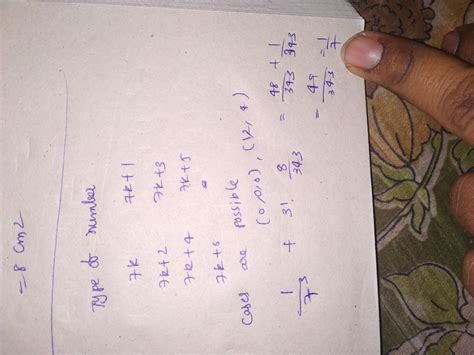 = 8 cm2
Type of number
7k 7k+1
7k+2 7k+3
7k+4 7k+5
7k+6
Cases are possible
(0,0,0), (1,2,4)
1/7³ + 3! 8/343 = 48/343 + 1/343
= 49/343 = 1/7